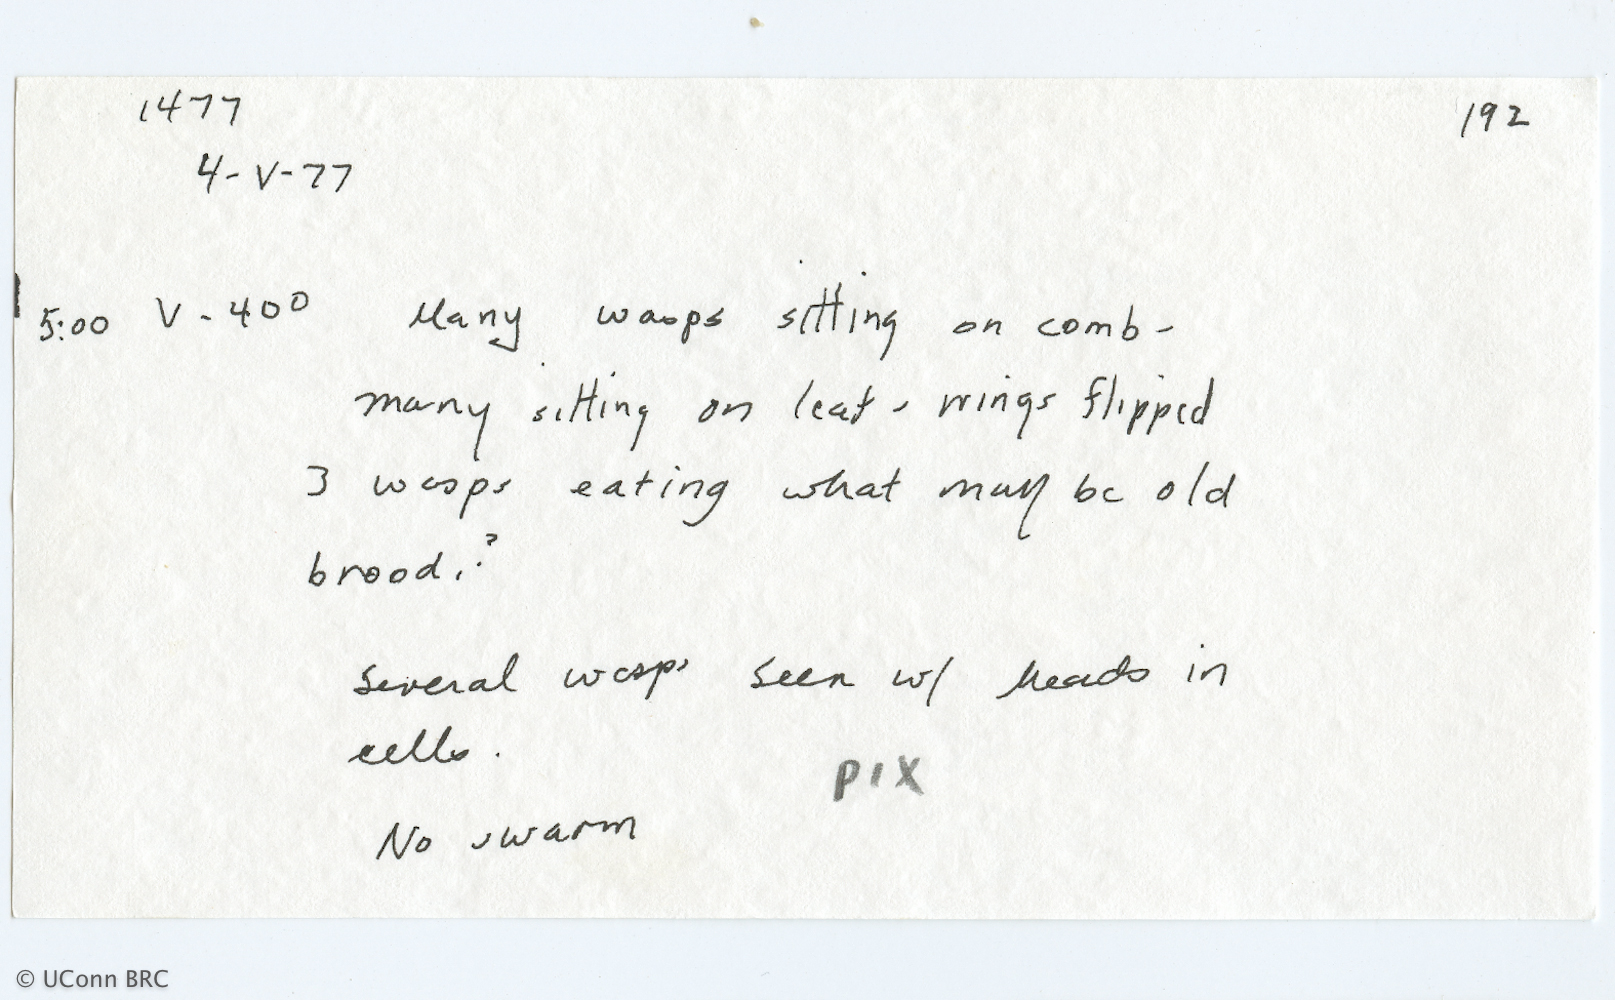 1477
192
4-V-77
5:00 V-400 Many wasps sitting on comb-
many sitting on leaf - wings flipped
3 wasps eating what may be old
brood.?
Several wasps seen w/ heads in
cells.
PIX
No swarm
© UConn BRC